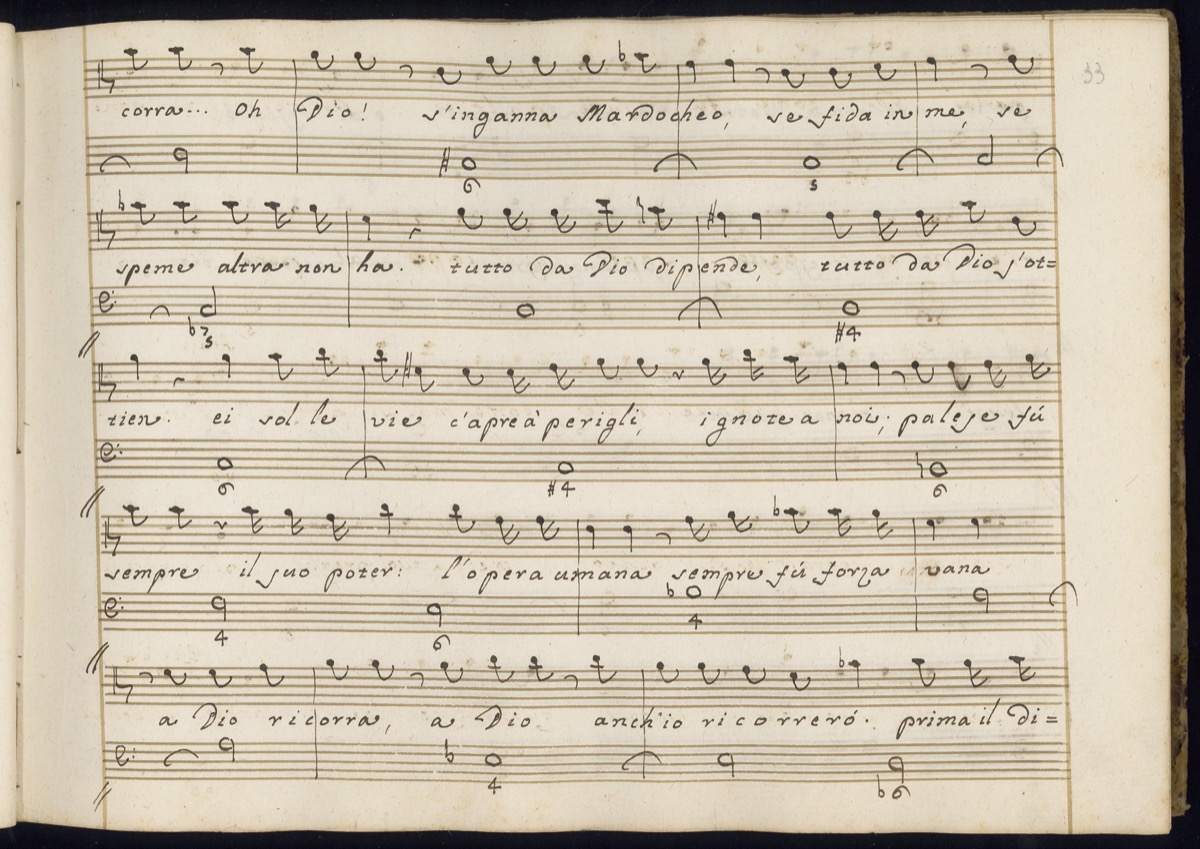 33
corra... Oh Dio! s'inganna Mardocheo, se fida in me, se
6 5
speme altra non ha. tutto da Dio dipende, tutto da Dio s'ot=
b7 5 #4
tien. ei sol le vie c'apre à perigli, ignote a noi; palese fú
6 #4 6
sempre il suo poter: l'opera umana sempre fú forza vana
4 6 4
a Dio ricorra, a Dio anch'io ricorreró. prima il di=
4 b6